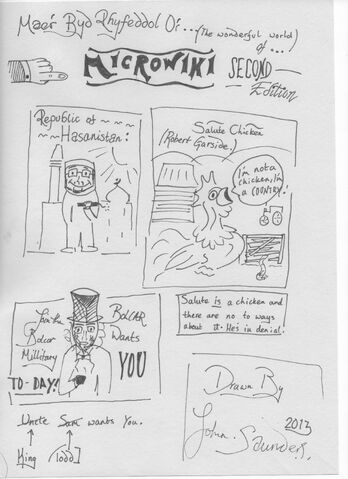 Mae'r Byd Rhyfeddol O'... (The wonderful world)
of...)
MICROWIKI SECOND
Edition
Republic of ~ ~ ~
~ ~ ~ Hasanistan:
Salute Chicken
(Robert Garside.)
I'm not a
chicken, I'm
a COUNTRY!
Salute is a chicken and
there are no to ways
about it. He's in denial.
Join the
Bolcar
Millitary
TO-DAY!
BOLCAR
Wants
YOU
Uncle Sam wants You.
King Todd
Drawn By
John. Saunders.
2013